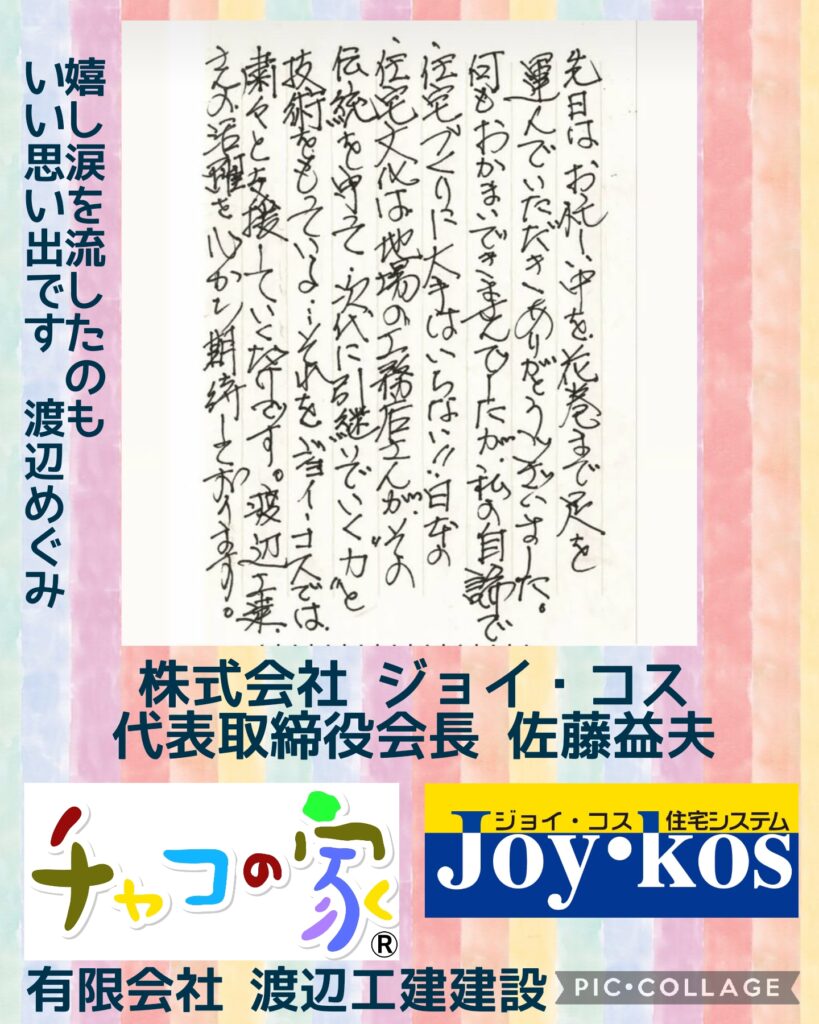 嬉し涙を流したのも
いい思い出です 渡辺めぐみ
先日はお忙しい中を花巻まで足を
運んでいただきありがとうございました。
何もおかまいできませんでしたが、私の自論で
住宅づくりに大手はいらない!!日本の
住宅文化は地場の工務店さんが、その
伝統を守って次代に引継いでいく“力”と
技術をもっている…それをジョイ・コスでは
粛々と支援していくだけです。渡辺工業
さんの活躍を心から期待しております。
株式会社 ジョイ・コス
代表取締役会長 佐藤益夫
チャコの家く®
ジョイ・コス 住宅システム
Joy•kos
有限会社 渡辺工建建設
PIC•COLLAGE